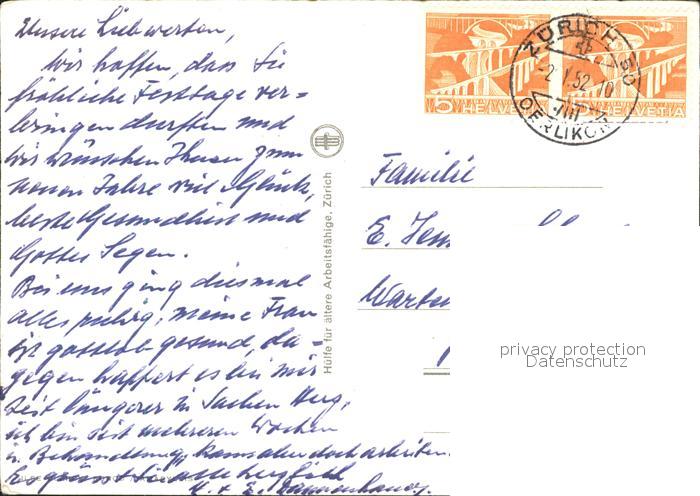 Unsere Liebwerten,
Wir hoffen, dass Sie
fröhliche Festtage ver-
bringen durften und
wir wünschen Ihnen zum
neuen Jahre viel Glück,
beste Gesundheit und
Gottes Segen.
Bei uns ging diesmal
alles ruhig, meine Frau
ist gottlob gesund, da-
gegen happert es bei mir
seit längerer in Sachen Herz,
ich bin seit mehreren Wochen
in Behandlung, kann aber doch arbeiten.
Es grüsst Sie alle herzlich
H. + E.
Hülfe für ältere Arbeitsfähige, Zürich
5 HELVETIA HELVETIA
ZÜRICH 50
-2.I.52.10
OERLIKON
Familie
E.
privacy protection
Datenschutz